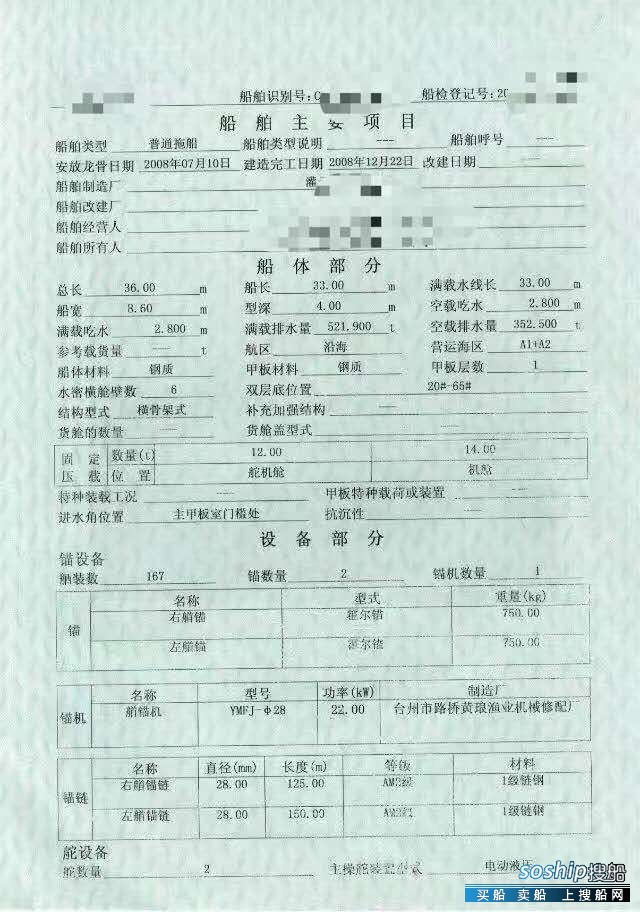 船舶识别号:C 船检登记号:20
船舶主要项目
船舶类型 普通拖船 船舶类型说明 --- 船舶呼号 ---
安放龙骨日期 2008年07月10日 建造完工日期 2008年12月22日 改建日期 ---
船舶制造厂 灌
船舶改建厂
船舶经营人
船舶所有人
船体部分
总长 36.00 m 船长 33.00 m 满载水线长 33.00 m
船宽 8.60 m 型深 4.00 m 空载吃水 2.800 m
满载吃水 2.800 m 满载排水量 521.900 t 空载排水量 352.500 t
参考载货量 --- t 航区 沿海 营运海区 A1+A2
船体材料 钢质 甲板材料 钢质 甲板层数 1
水密横舱壁数 6 双层底位置 20#-65#
结构型式 横骨架式 补充加强结构 ---
货舱的数量 --- 货舱盖型式 ---
固定 数量(t) 12.00 14.00
压载 位置 舵机舱 机舱
特种装载工况 --- 甲板特种载荷或装置 ---
进水角位置 主甲板室门槛处 抗沉性 ---
设备部分
锚设备
舾装数 167 锚数量 2 锚机数量 1
锚 名称 型式 重量(kg)
右艏锚 霍尔锚 750.00
左艏锚 霍尔锚 750.00
锚机 名称 型号 功率(kW) 制造厂
艏锚机 YMFJ-Φ28 22.00 台州市路桥黄琅渔业机械修配厂
锚链 名称 直径(mm) 长度(m) 等级 材料
右艏锚链 28.00 125.00 AM2级 1级链钢
左艏锚链 28.00 150.00 AM2级 1级链钢
舵设备
舵数量 2 主操舵装置型式 电动液压
soship搜船
买船 卖船 上搜船网